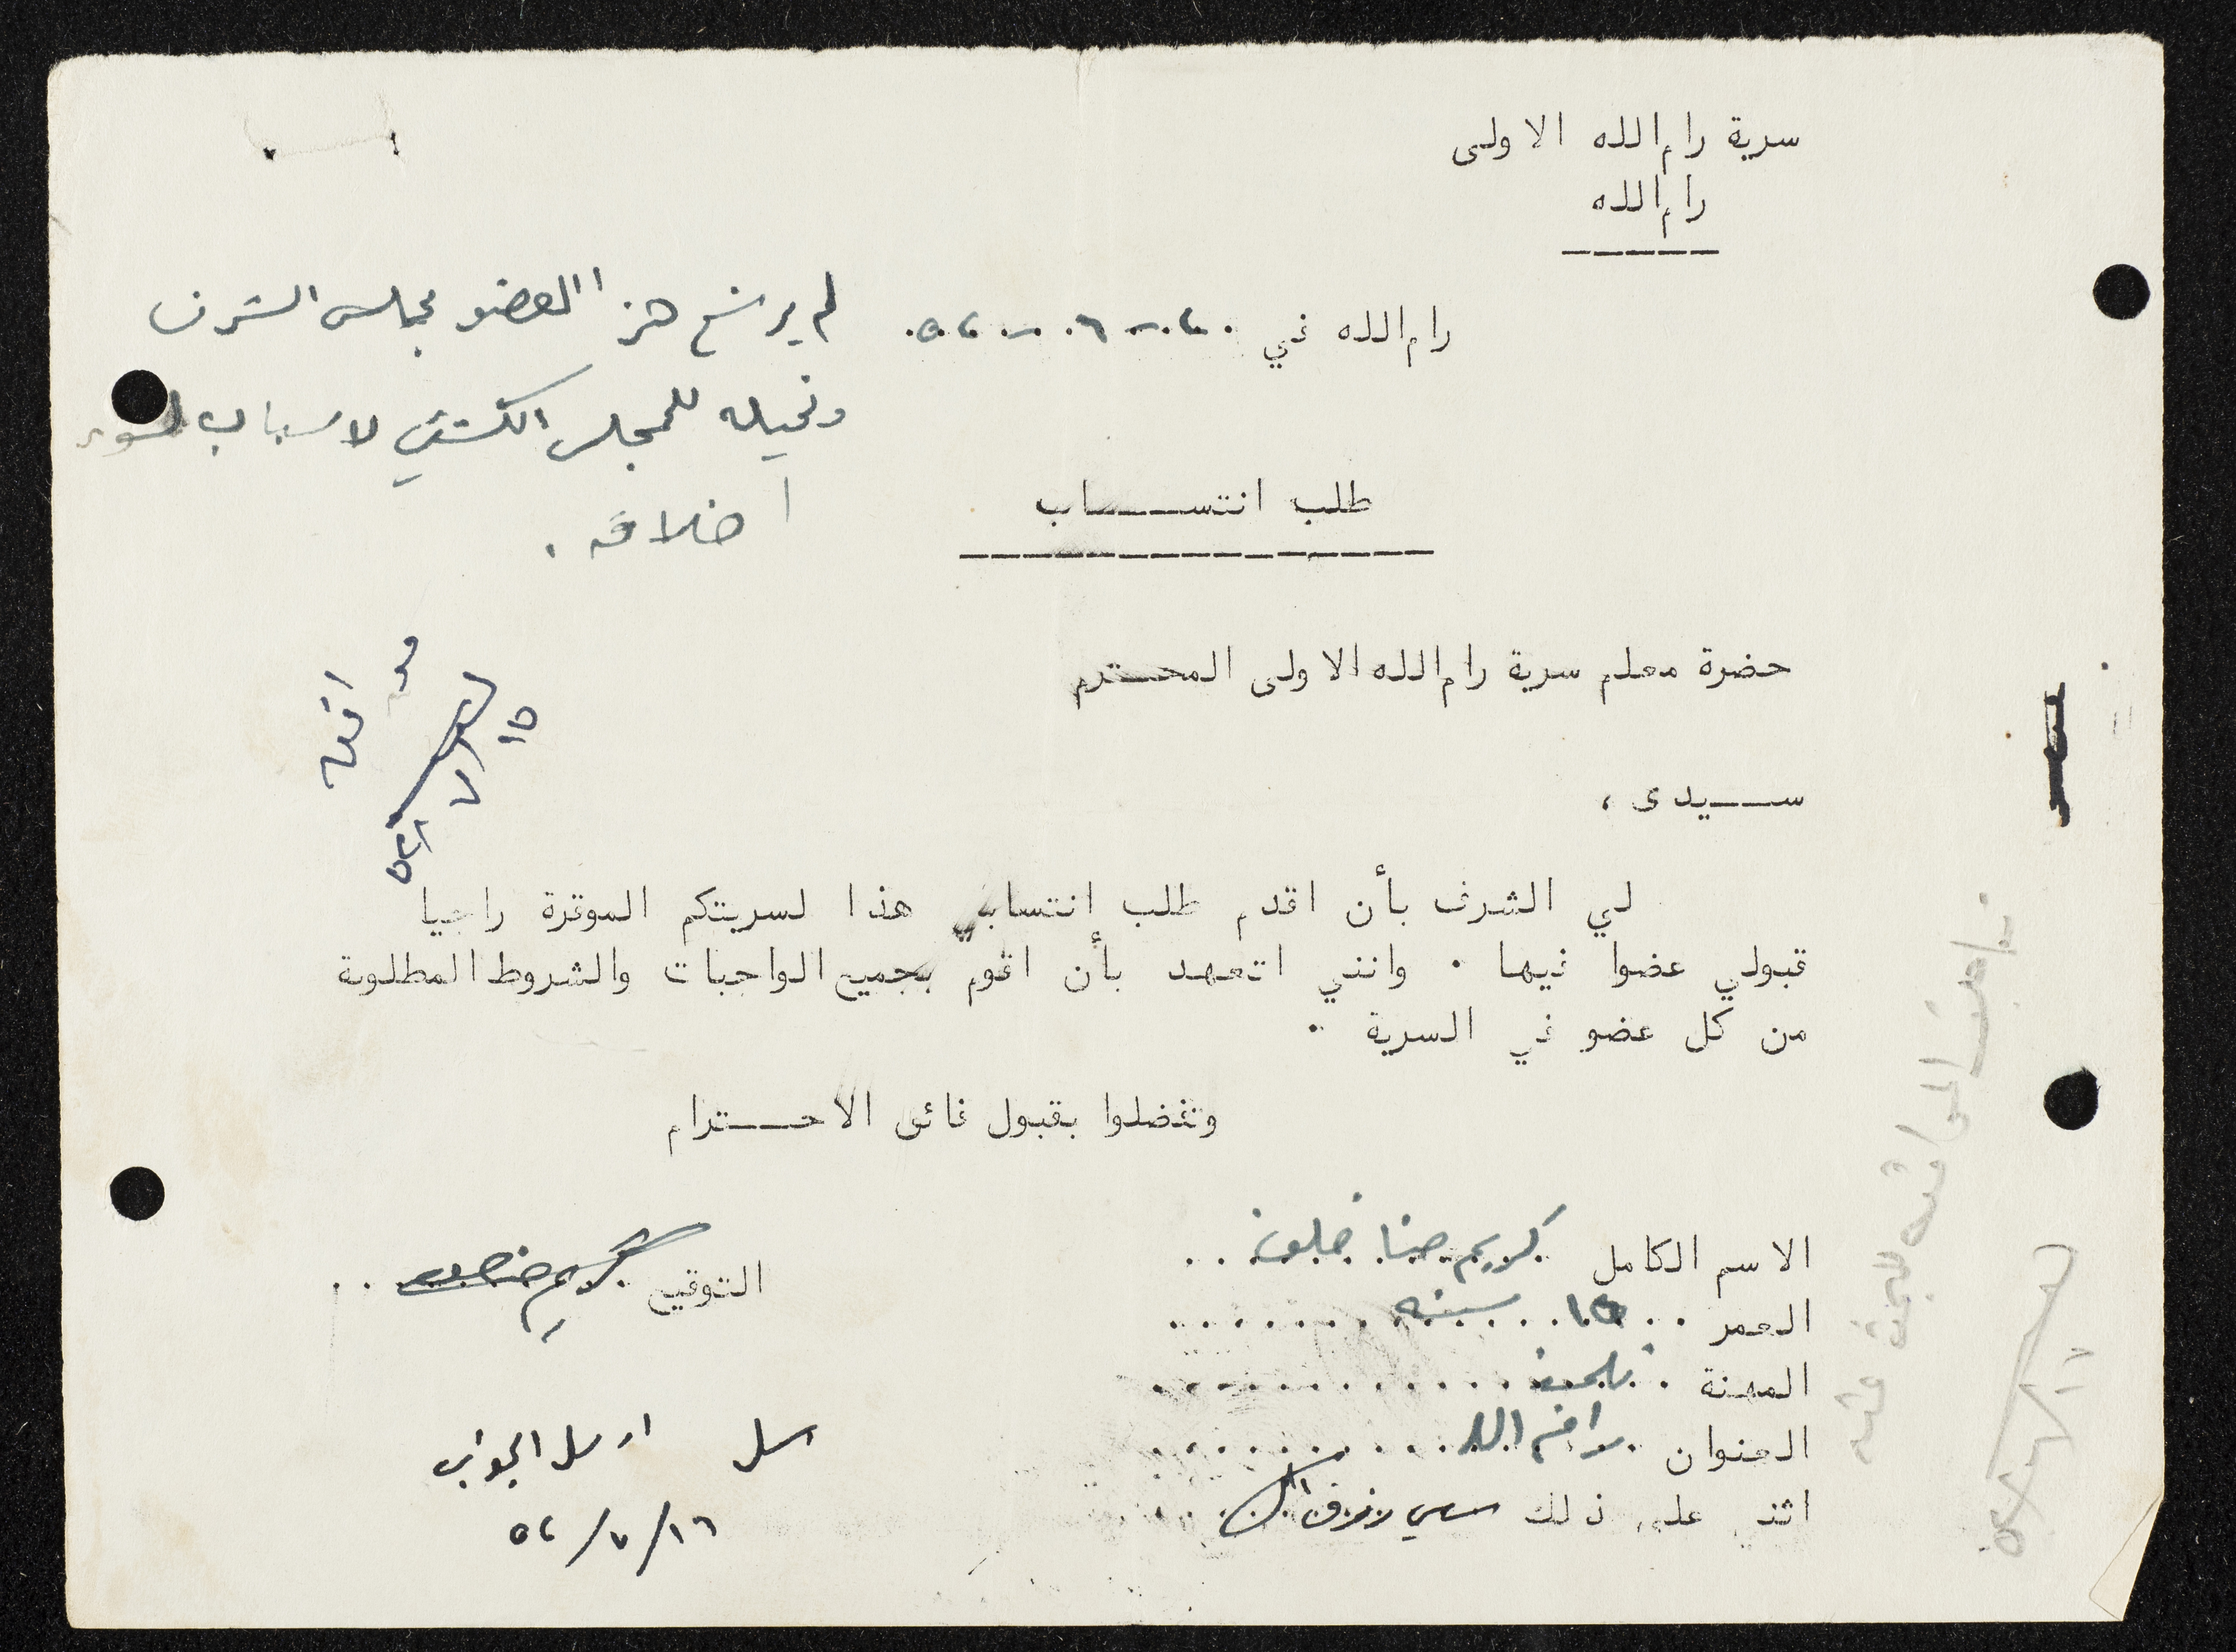 سرية رام الله الاولى
رام الله
رام الله في ٢٠ - ٦ - ٥٢
لم يرشح هذا العضو مجلس الشرف
ونحيله للمجلس الكشفي لاسباب لسوء
اخلاقه .
طلب انتســـــاب
حضرة معلم سرية رام الله الاولى المحــترم
ســـيدى ،
لي الشرف بأن اقدم طلب انتسابي هذا لسريتكم الموقرة راجيا
قبولي عضوا فيها . وانني اتعهد بأن اقوم بجميع الواجبات والشروط المطلوبة
من كل عضو في السرية .
وتفضلوا بقبول فائق الاحـــترام
الاسم الكامل كريم حنا خلف
التوقيع كريم خلف
العمر ١٥ سنه
المهنة تلميذ
العنوان رام الله
اثنى على ذلك
ارسل الجواب
١٦/٧/٥٢